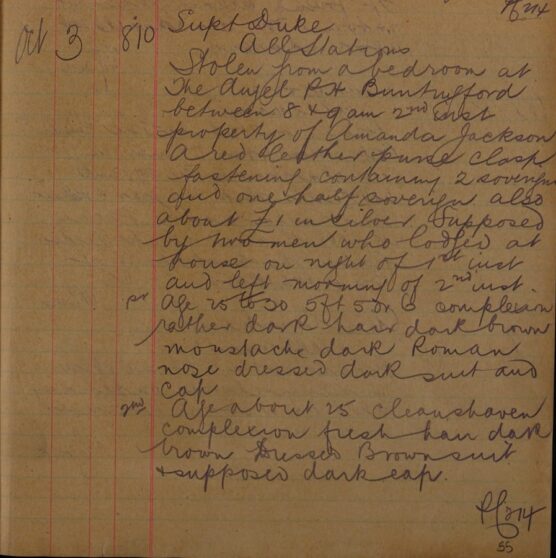 Pc 214
Oct 3 8/10 Supt Duke
All Stations
Stolen from a bedroom at
The Angel PH Buntingford
between 8 & 9 am 2nd inst
property of Amanda Jackson
A red leather purse clasp
fastening containing 2 sovereign
and one half sovereign also
about £1 in silver Supposed
by two men who lodged at
house on night of 1st inst
and left morning of 2nd inst.
Age 25 to 30 5ft 5 or 6 complexion
rather dark hair dark brown
moustache dark Roman
nose dressed dark suit and
cap
2nd Age about 25 cleanshaven
complexion fresh hair dark
brown Dressed Brown suit
& supposed dark cap.
Pc 214
55